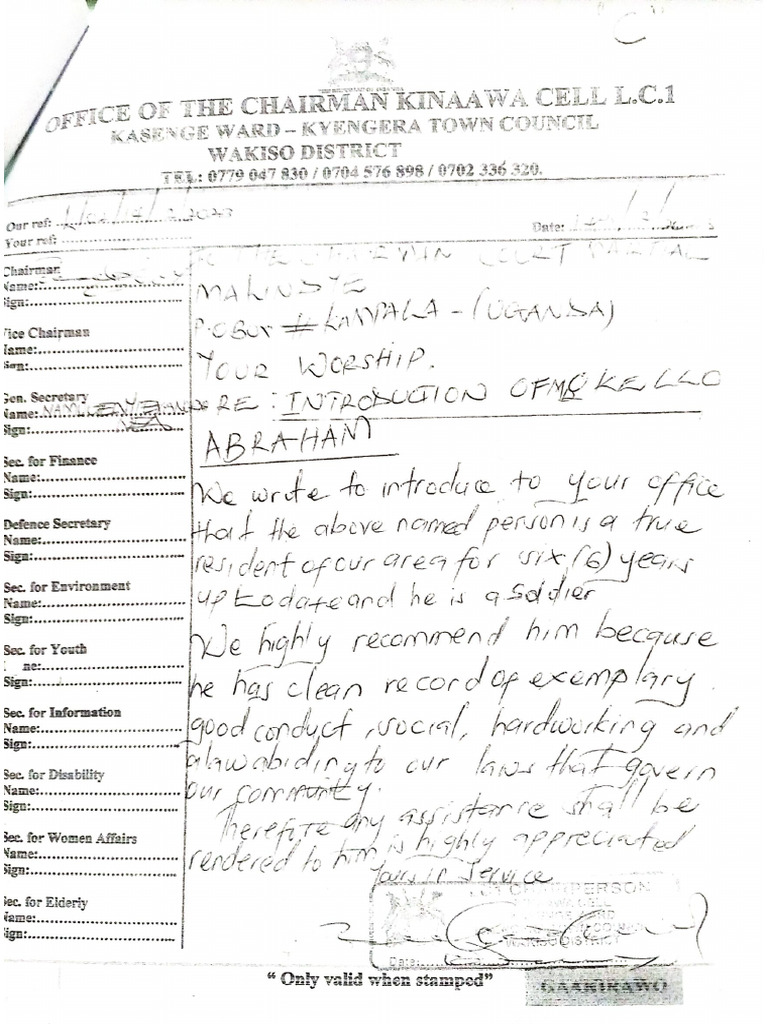 OFFICE OF THE CHAIRMAN KINAAWA CELL L.C.1
KASENGE WARD – KYENGERA TOWN COUNCIL
WAKISO DISTRICT
TEL: 0779 047 830 / 0704 576 898 / 0702 336 320.
Our ref:
Your ref:
Date:
Chairman
Name:
Sign:
Vice Chairman
Name:
Sign:
Gen. Secretary
Name:
Sign:
Sec. for Finance
Name:
Sign:
Defence Secretary
Name:
Sign:
Sec. for Environment
Name:
Sign:
Sec. for Youth
Sign:
Sec. for Information
Name:
Sign:
Sec. for Disability
Name:
Sign:
Sec. for Women Affairs
Name:
Sign:
Sec. for Elderly
Name:
Sign:
COURT MARTIAL
MAKINDYE
P.O BOX # KAMPALA - (UGANDA)
YOUR WORSHIP.
RE: INTRODUCTION OF MR OKELLO
ABRAHAM
We wrote to introduce to your office
that the above named person is a true
resident of our area for six (6) years
up to date and he is a soldier
We highly recommend him because
he has clean record of exemplary
good conduct, social, hardworking and
a law abiding to our laws that govern
our community.
Therefore any assistance shall be
rendered to him is highly appreciated
Yours in Service
CHAIRPERSON
WAKISO DISTRICT
Date:
" Only valid when stamped"
GAAKIRAWO